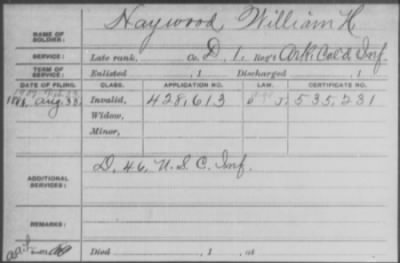 NAME OF SOLDIER: Haywood, William H.
SERVICE: Late rank, Co. D, 1, Reg't Ark. Col'd Inf.
TERM OF SERVICE: Enlisted , 1 Discharged , 1
DATE OF FILING. CLASS. APPLICATION NO. LAW. CERTIFICATE NO.
Aug. Invalid, 428,613 535,231
Widow,
Minor,
ADDITIONAL SERVICES: D, 46, U.S.C. Inf.
REMARKS:
Died , 1 , at